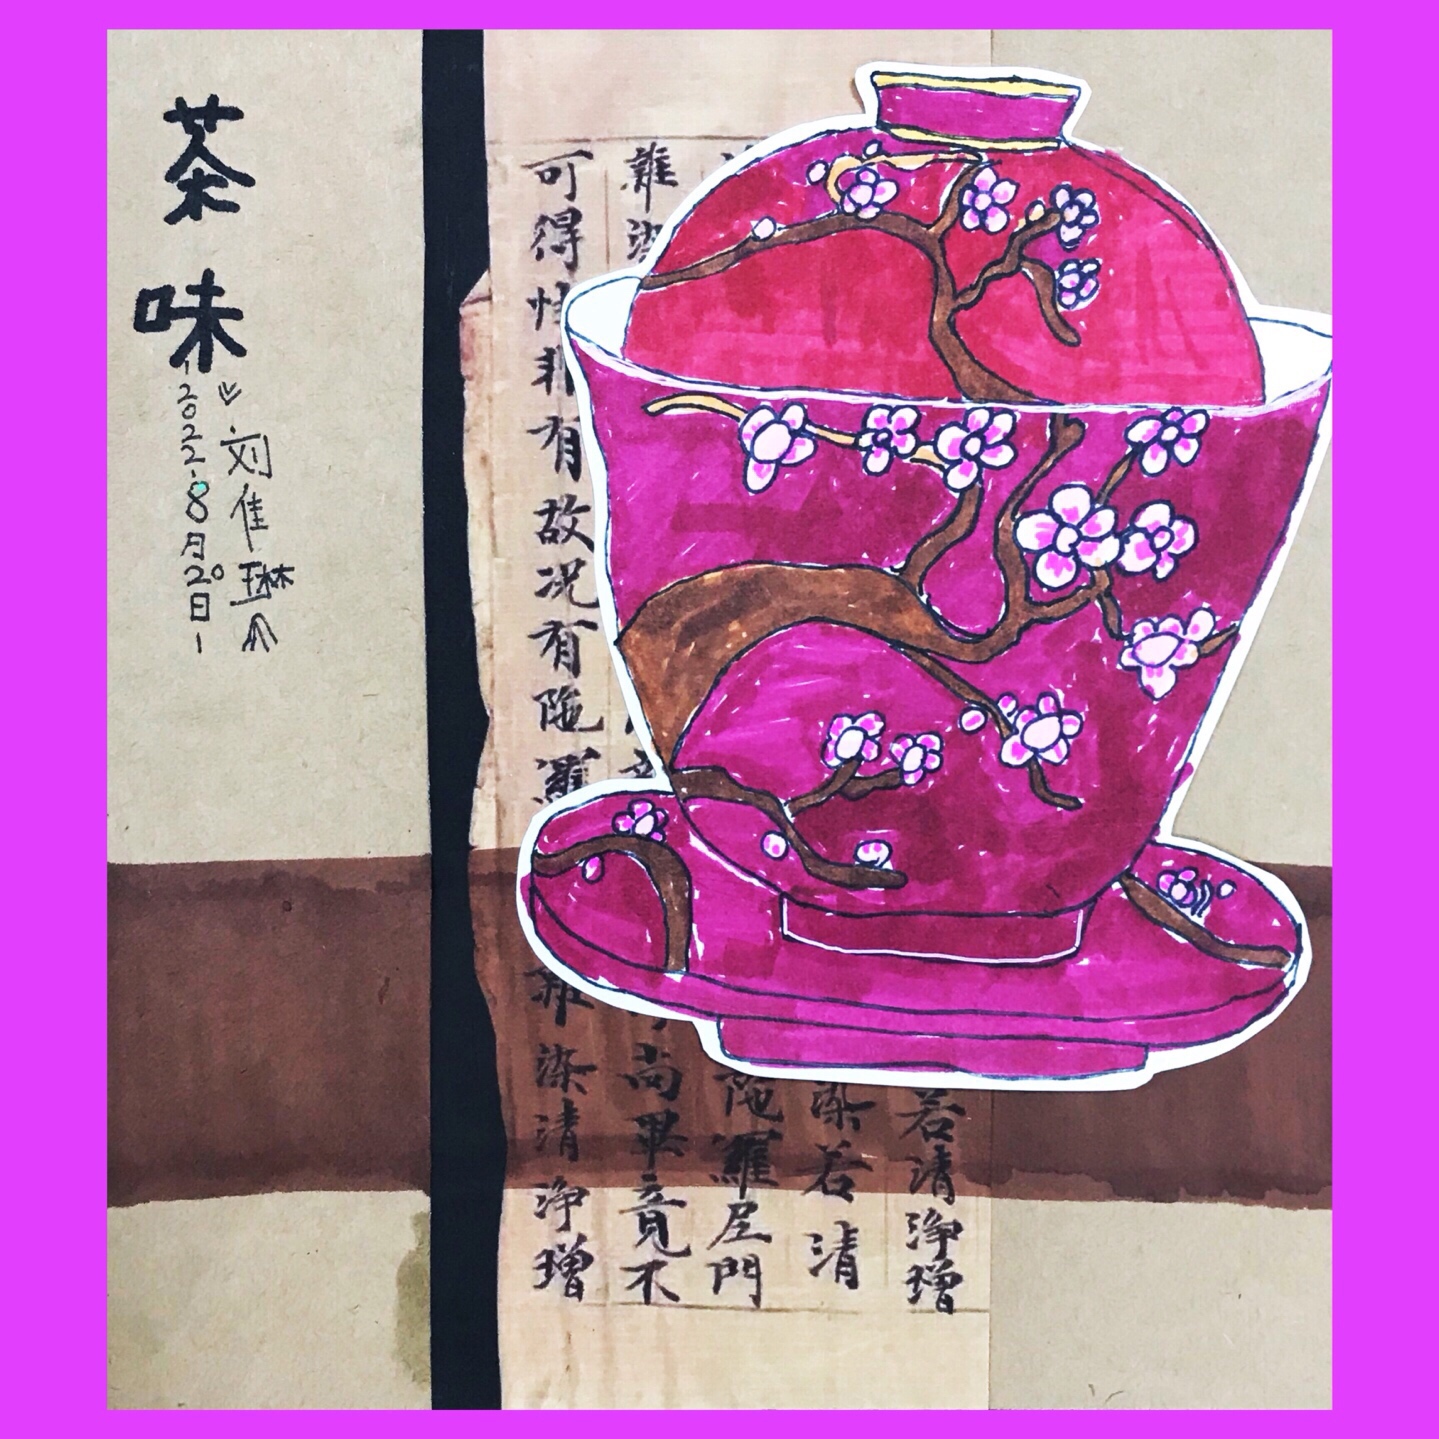 茶味
刘佳琳
2022.8月20日
若清淨增
染若清
陁羅尼門
雜
尚畢竟不
可得性非有故况有陁羅
雜染清淨增